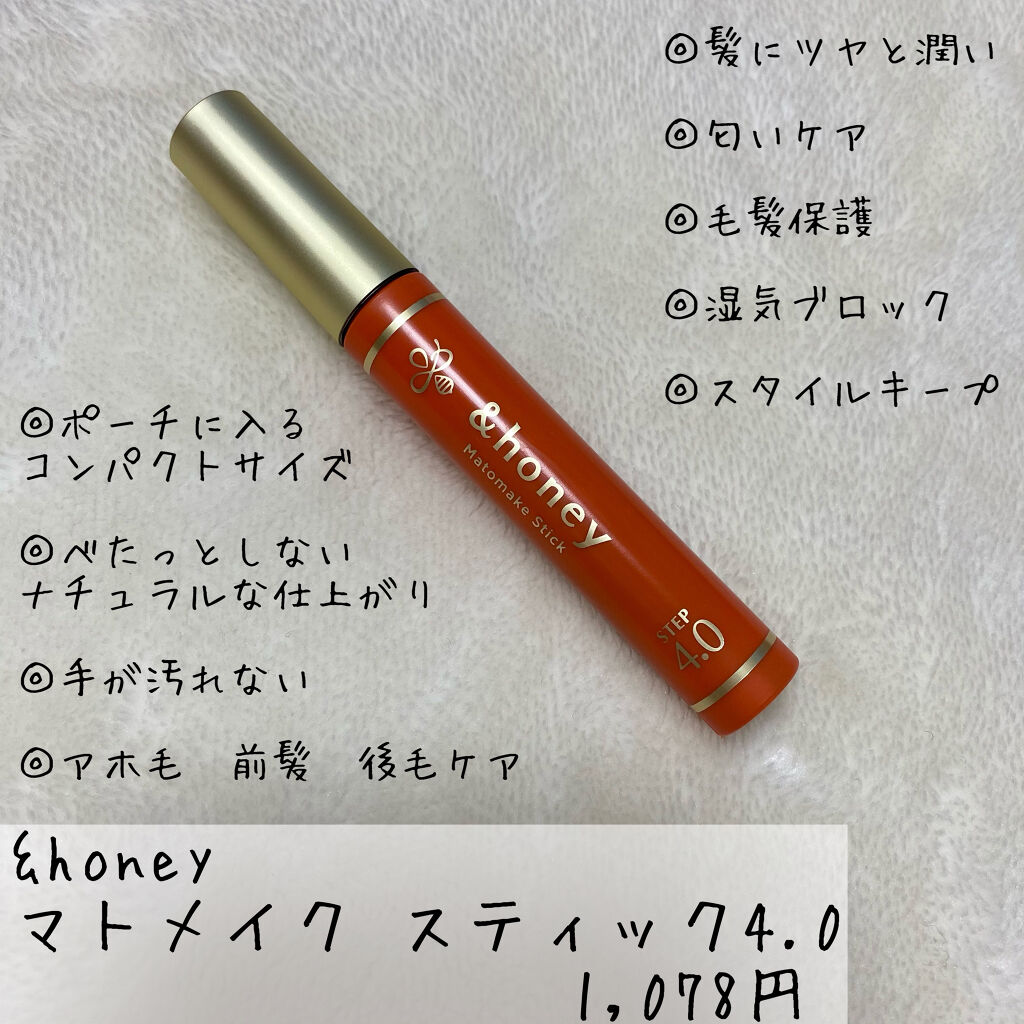 ◎髪にツヤと潤い
◎匂いケア
◎毛髪保護
◎湿気ブロック
◎スタイルキープ
&honey
Matomake Stick
STEP
4.0
◎ポーチに入る
コンパクトサイズ
◎べたっとしない
ナチュラルな仕上がり
◎手が汚れない
◎アホ毛 前髪 後毛ケア
&honey
マトメイク スティック4.0
1,078円